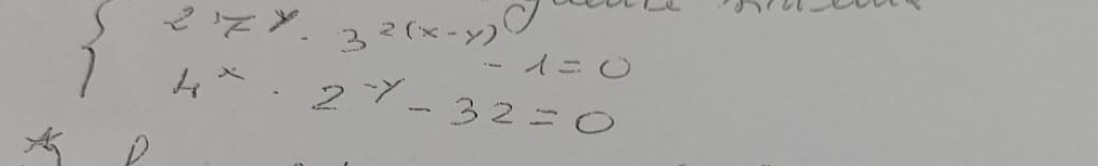 27^y · 3^{2(x-y)} - 1 = 0
4^x · 2^{-y} - 32 = 0